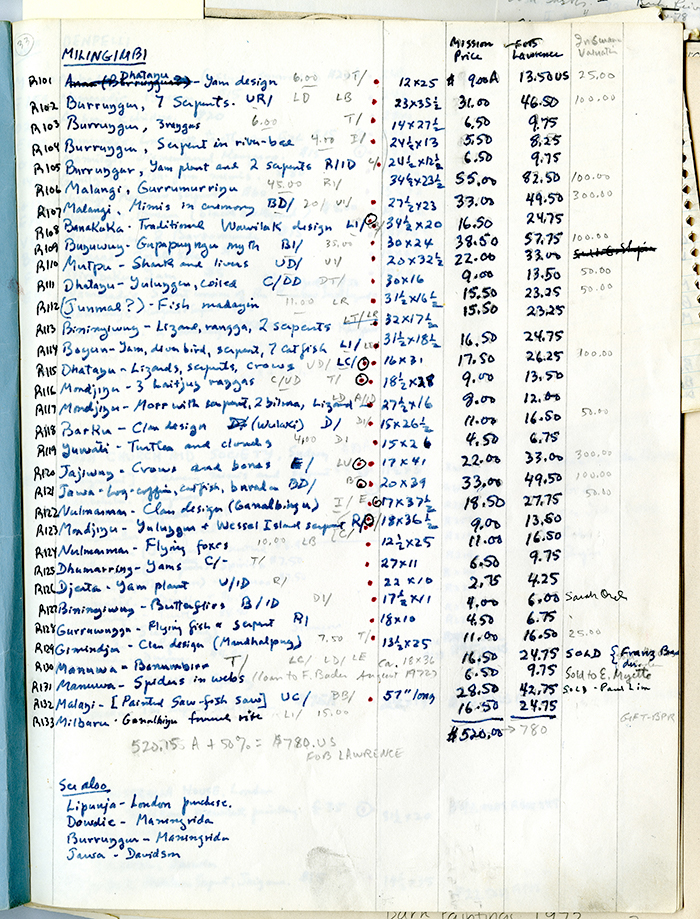 33
MILINGIMBI Mission Price FOB Lawrence Insurance Valuation
R101 Dhatangu - Yam design 6.00 T/ 12x25 $ 9.00A 13.50US 25.00
R102 Burrunggur, 7 Serpents. UR/ LD LB 23x35½ 31.00 46.50 100.00
R103 Burrunggur, 3 ranggas 6.00 T/ 14x27½ 6.50 9.75
R104 Burrunggur, Serpent in river-bed 4.00 I/ 24½x13 5.50 8.25
R105 Burrunggur, Yam plant and 2 serpents R/ID 24½x12½ 6.50 9.75
R106 Malangi, Gurrumurringu 45.00 R/ 34½x23½ 55.00 82.50 100.00
R107 Malangi, Mimis in ceremony BD/ 20/ 27½x23 33.00 49.50 300.00
R108 Banakaka - Traditional Wawilak design LI/ 34½x20 16.50 24.75
R109 Buyuwuy - Gupapuyngu myth BI/ 35.00 30x24 38.50 57.75 100.00
R110 Mutpu - Shark and livers UD/ VI/ 20x32½ 22.00 33.00
R111 Dhatangu - Yulunggur, coiled C/DD DT/ 30x16 9.00 13.50 50.00
R112 (Junmal?) - Fish madayin 11.00 LR 31½x16½ 15.50 23.25 50.00
R113 Bininyiwuy - Lizard, rangga, 2 serpents LT/LR 32x17½ 15.50 23.25
R114 Boyun - Yam, devenbird, serpent, 7 Catfish LI/ 31½x18½ 16.50 24.75
R115 Dhatangu - Lizards, serpents, crows UD/ LC/ 16x31 17.50 26.25 100.00
R116 Mondjingu - 3 Laitjug ranggas C/UD T/ 18½x28 9.00 13.50
R117 Mondjingu - Morr with serpent, 2 bilma, Lizard LD A/ID 27½x16 8.00 12.00
R118 Barku - Clan design (Wulaki) D/ DI/ 15x26½ 11.00 16.50 50.00
R119 Yuwati - Turtles and clouds 4.00 DI 15x26 4.50 6.75
R120 Jajiway - Crows and bones E/ LU 17x41 22.00 33.00 300.00
R121 Jawa - Log-coffin, catfish, baralu BD/ B 20x39 33.00 49.50 100.00
R122 Nulmarman - Clan design (Ganalbingu) I/ E 17x37½ 18.50 27.75 50.00
R123 Mondjingu - Yulunggur + Wessel Island serpent R/ 18x36½ 9.00 13.50
R124 Nulmarman - Flying foxes 10.00 LB LC/ 12½x25 11.00 16.50
R125 Dhumarring - Yams C/- T/ 27x11 6.50 9.75
R126 Djenta - Yam plant U/ID R/ 22x10 2.75 4.25
R127 Bininyiwuy - Butterflies B/ID DI/ 17½x11 4.00 6.00
R128 Gurruwungga - Flying fish + serpent R/ 18x10 4.50 6.75
R129 Gimindja - Clan design (Mandhalpuy) 7.50 T/ 13½x25 11.00 16.50 25.00
R130 Manuwa - Banumbirr T/ LC/ LD/ LE ca. 18x36 16.50 24.75 SOLD { Franz
R131 Manuwa - Spiders in webs (loan to F. Bader August 1972) 6.50 9.75 Sold to E. Myette
R132 Malangi - [Painted Saw-fish Saw] UC/ BB/ 57" long 28.50 42.75 SOLD - Paul Lim
R133 Milburu - Ganalbingu funeral rite LI/ 15.00 16.50 24.75 GIFT-BPR
$520.00 → 780
520.15 A + 50% = $780.US
FOB LAWRENCE
See also
Lipunja - London purchase.
Dawdie - Maningrida
Burrunggur - Maningrida
Jawa - Davidson